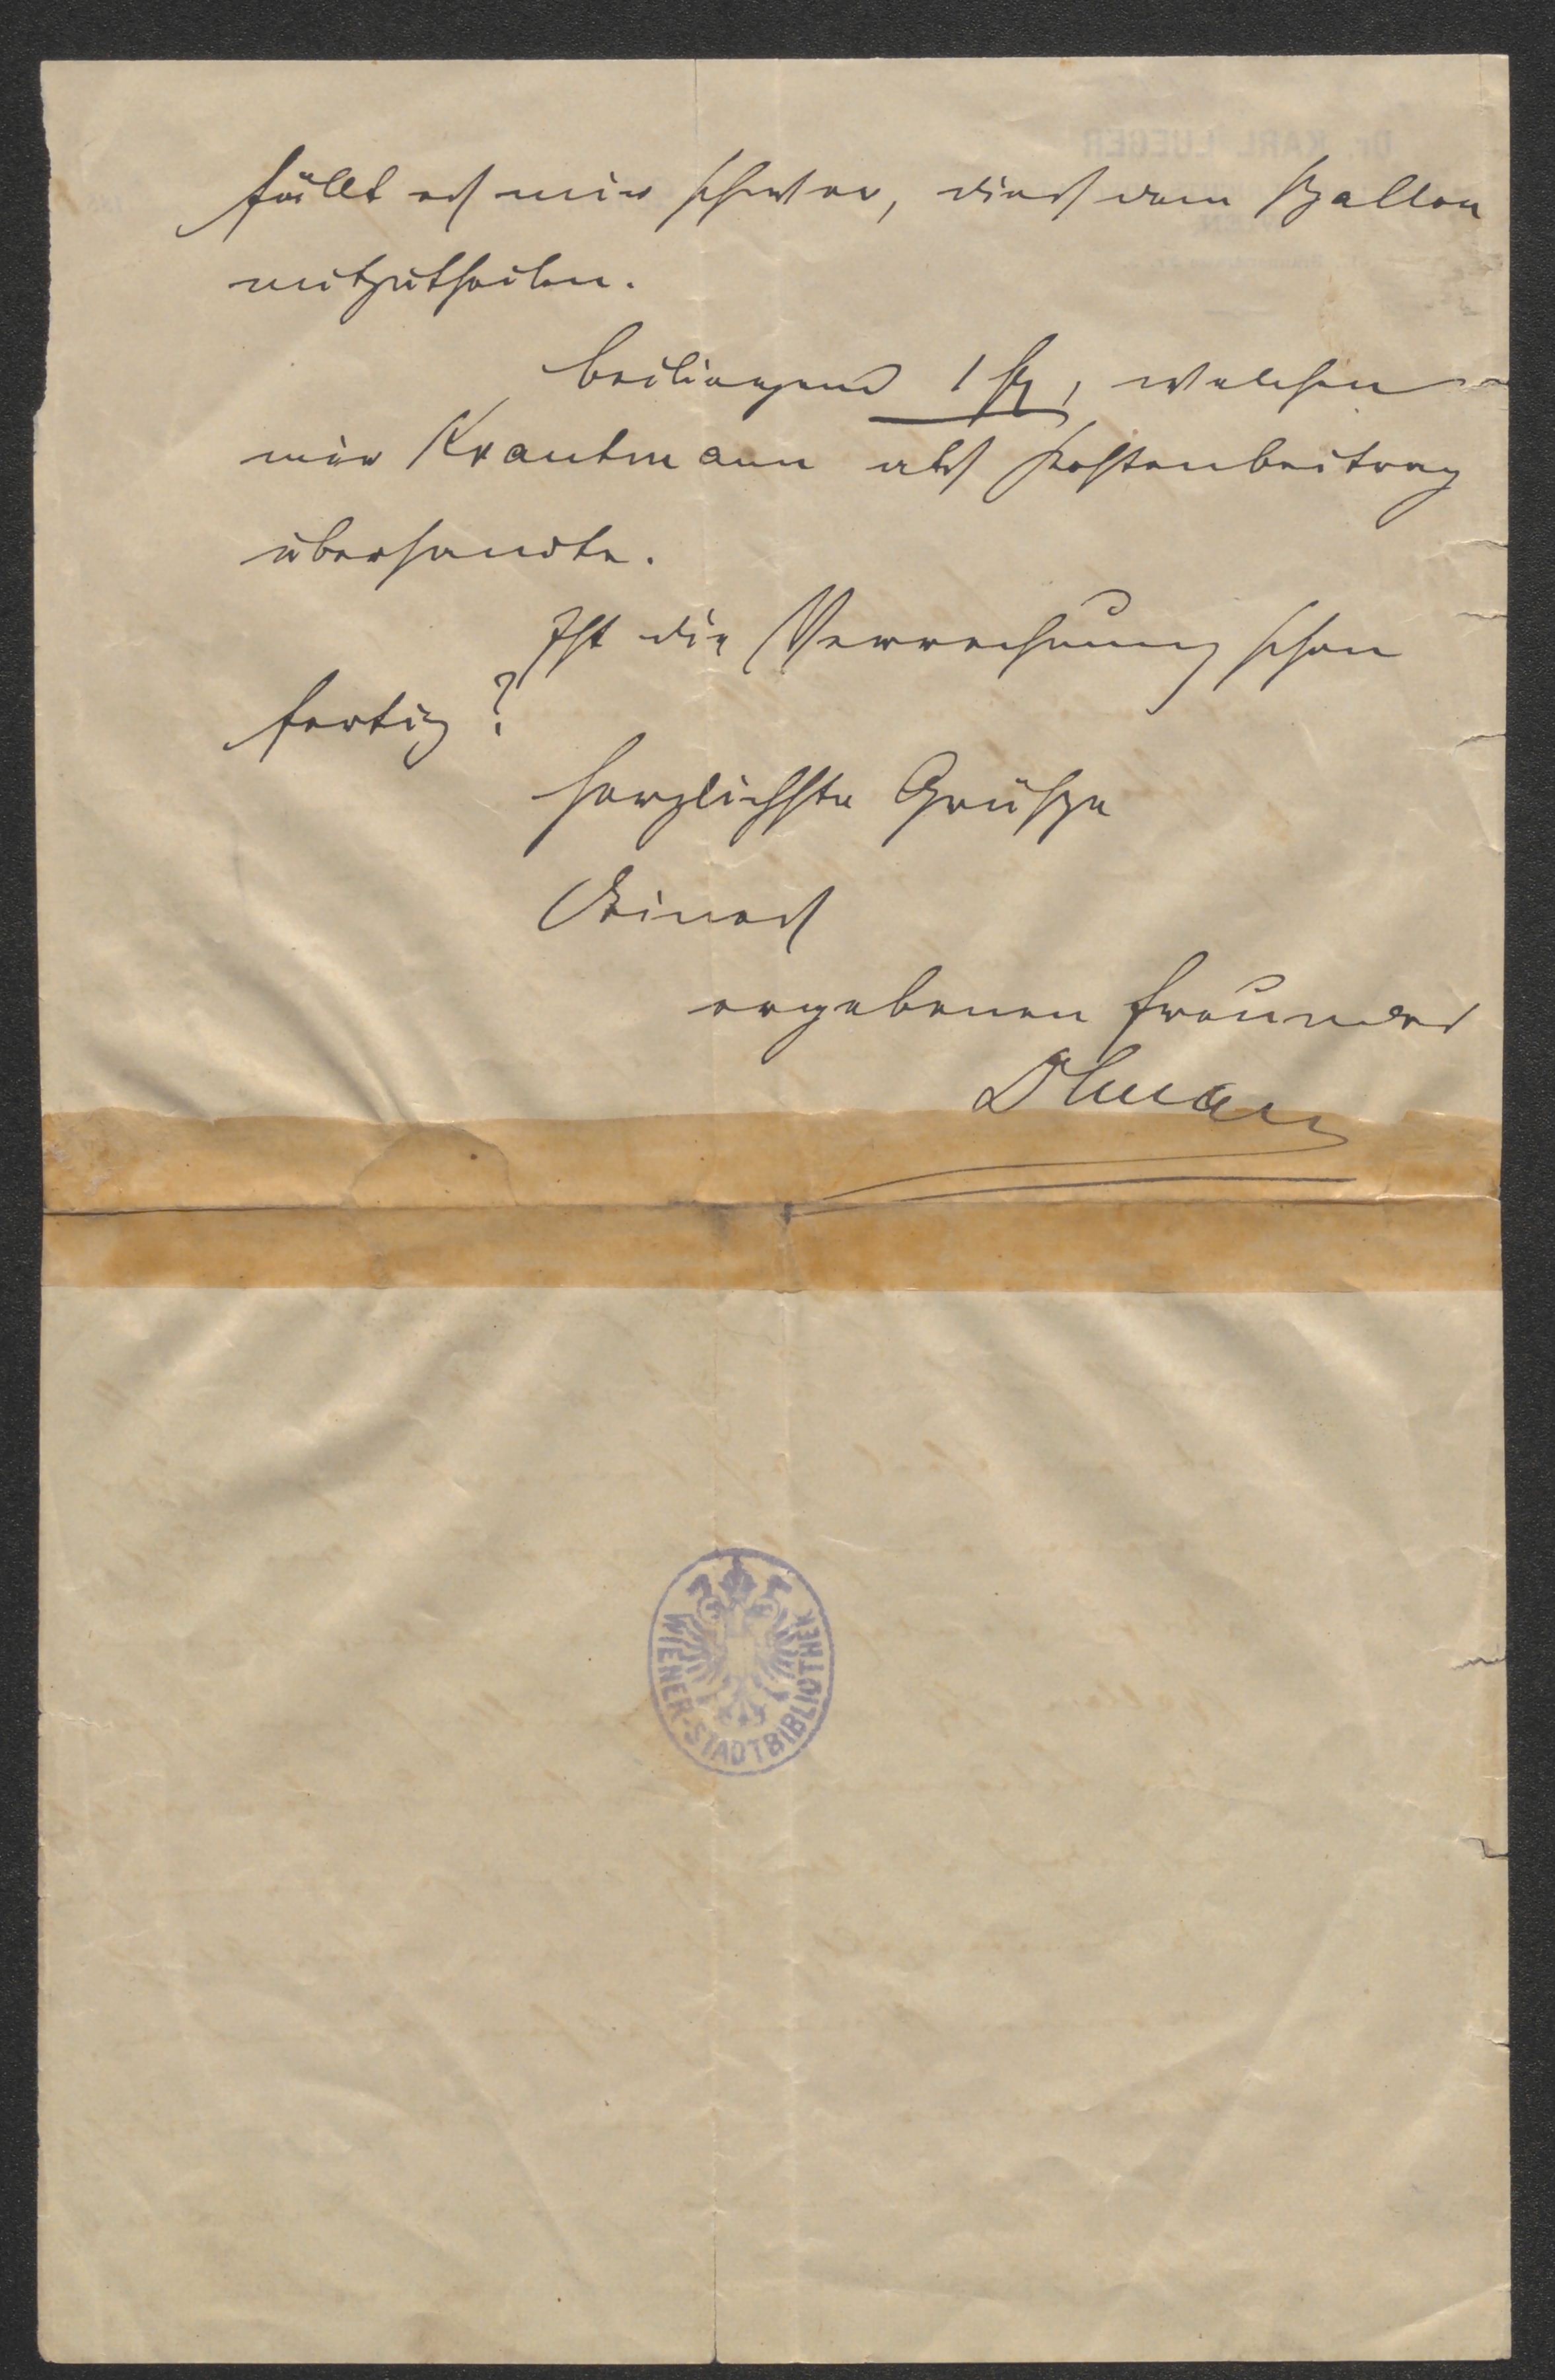 fällt es mir schwer, dies dem
mitzutheilen.
Beiliegend 1 fl, welchen
mir Krautmann als Kostenbeitrag
übersandte.
Ist die Verrechnung schon
fertig?
Herzlichste Grüße
Deines
ergebenen Freundes
DrLueger
WIENER-STADTBIBLIOTHEK